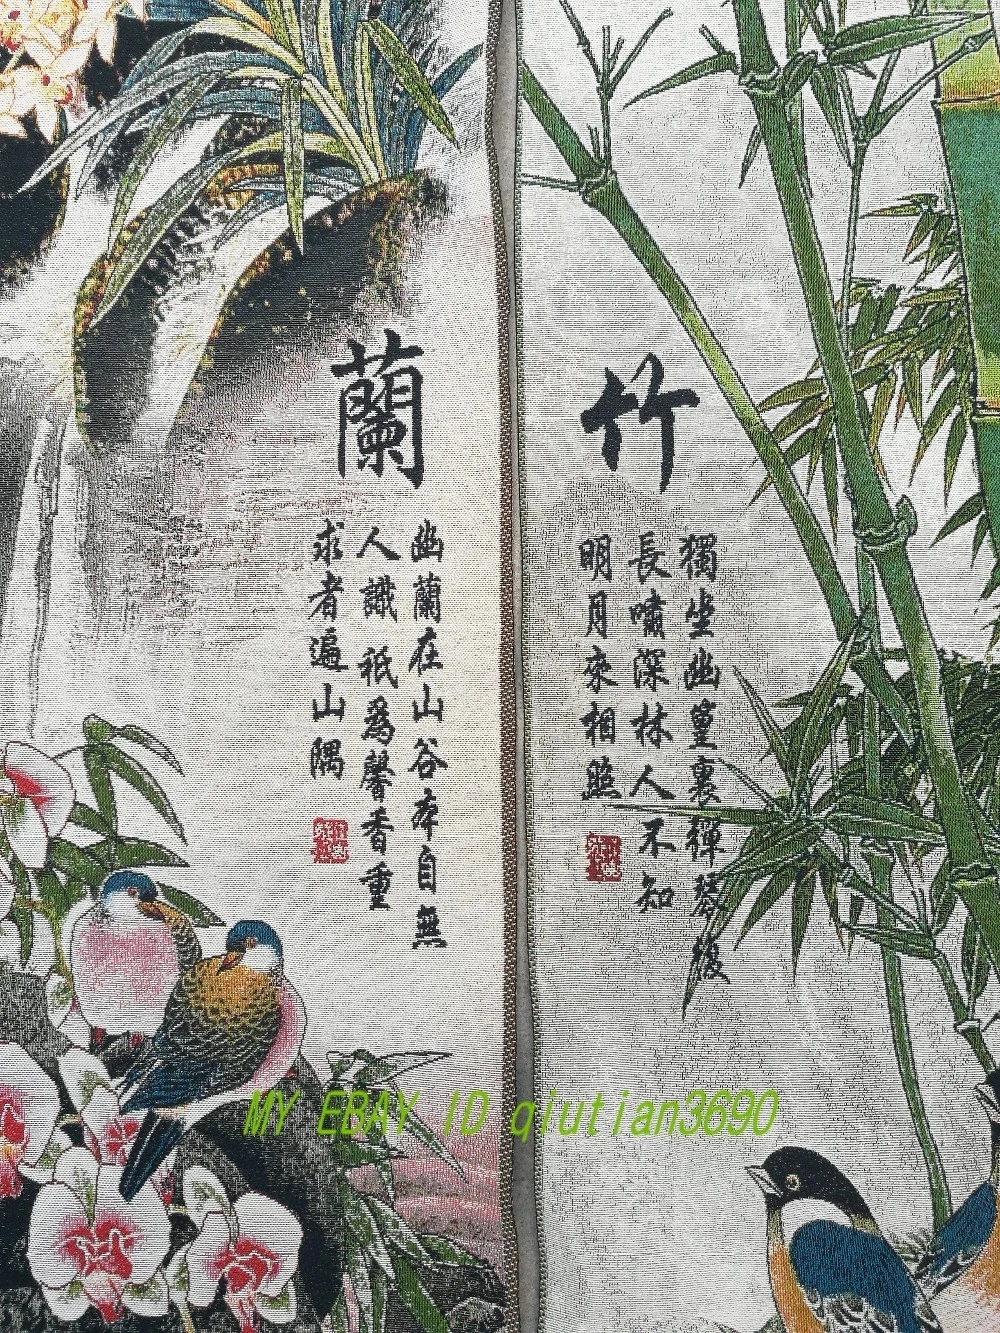 竹
獨坐幽篁裏彈琴復
長嘯深林人不知
明月來相照
蘭
幽蘭在山谷本自無
人識祇爲馨香重
求者遍山隅
MY EBAY ID qiutian3690